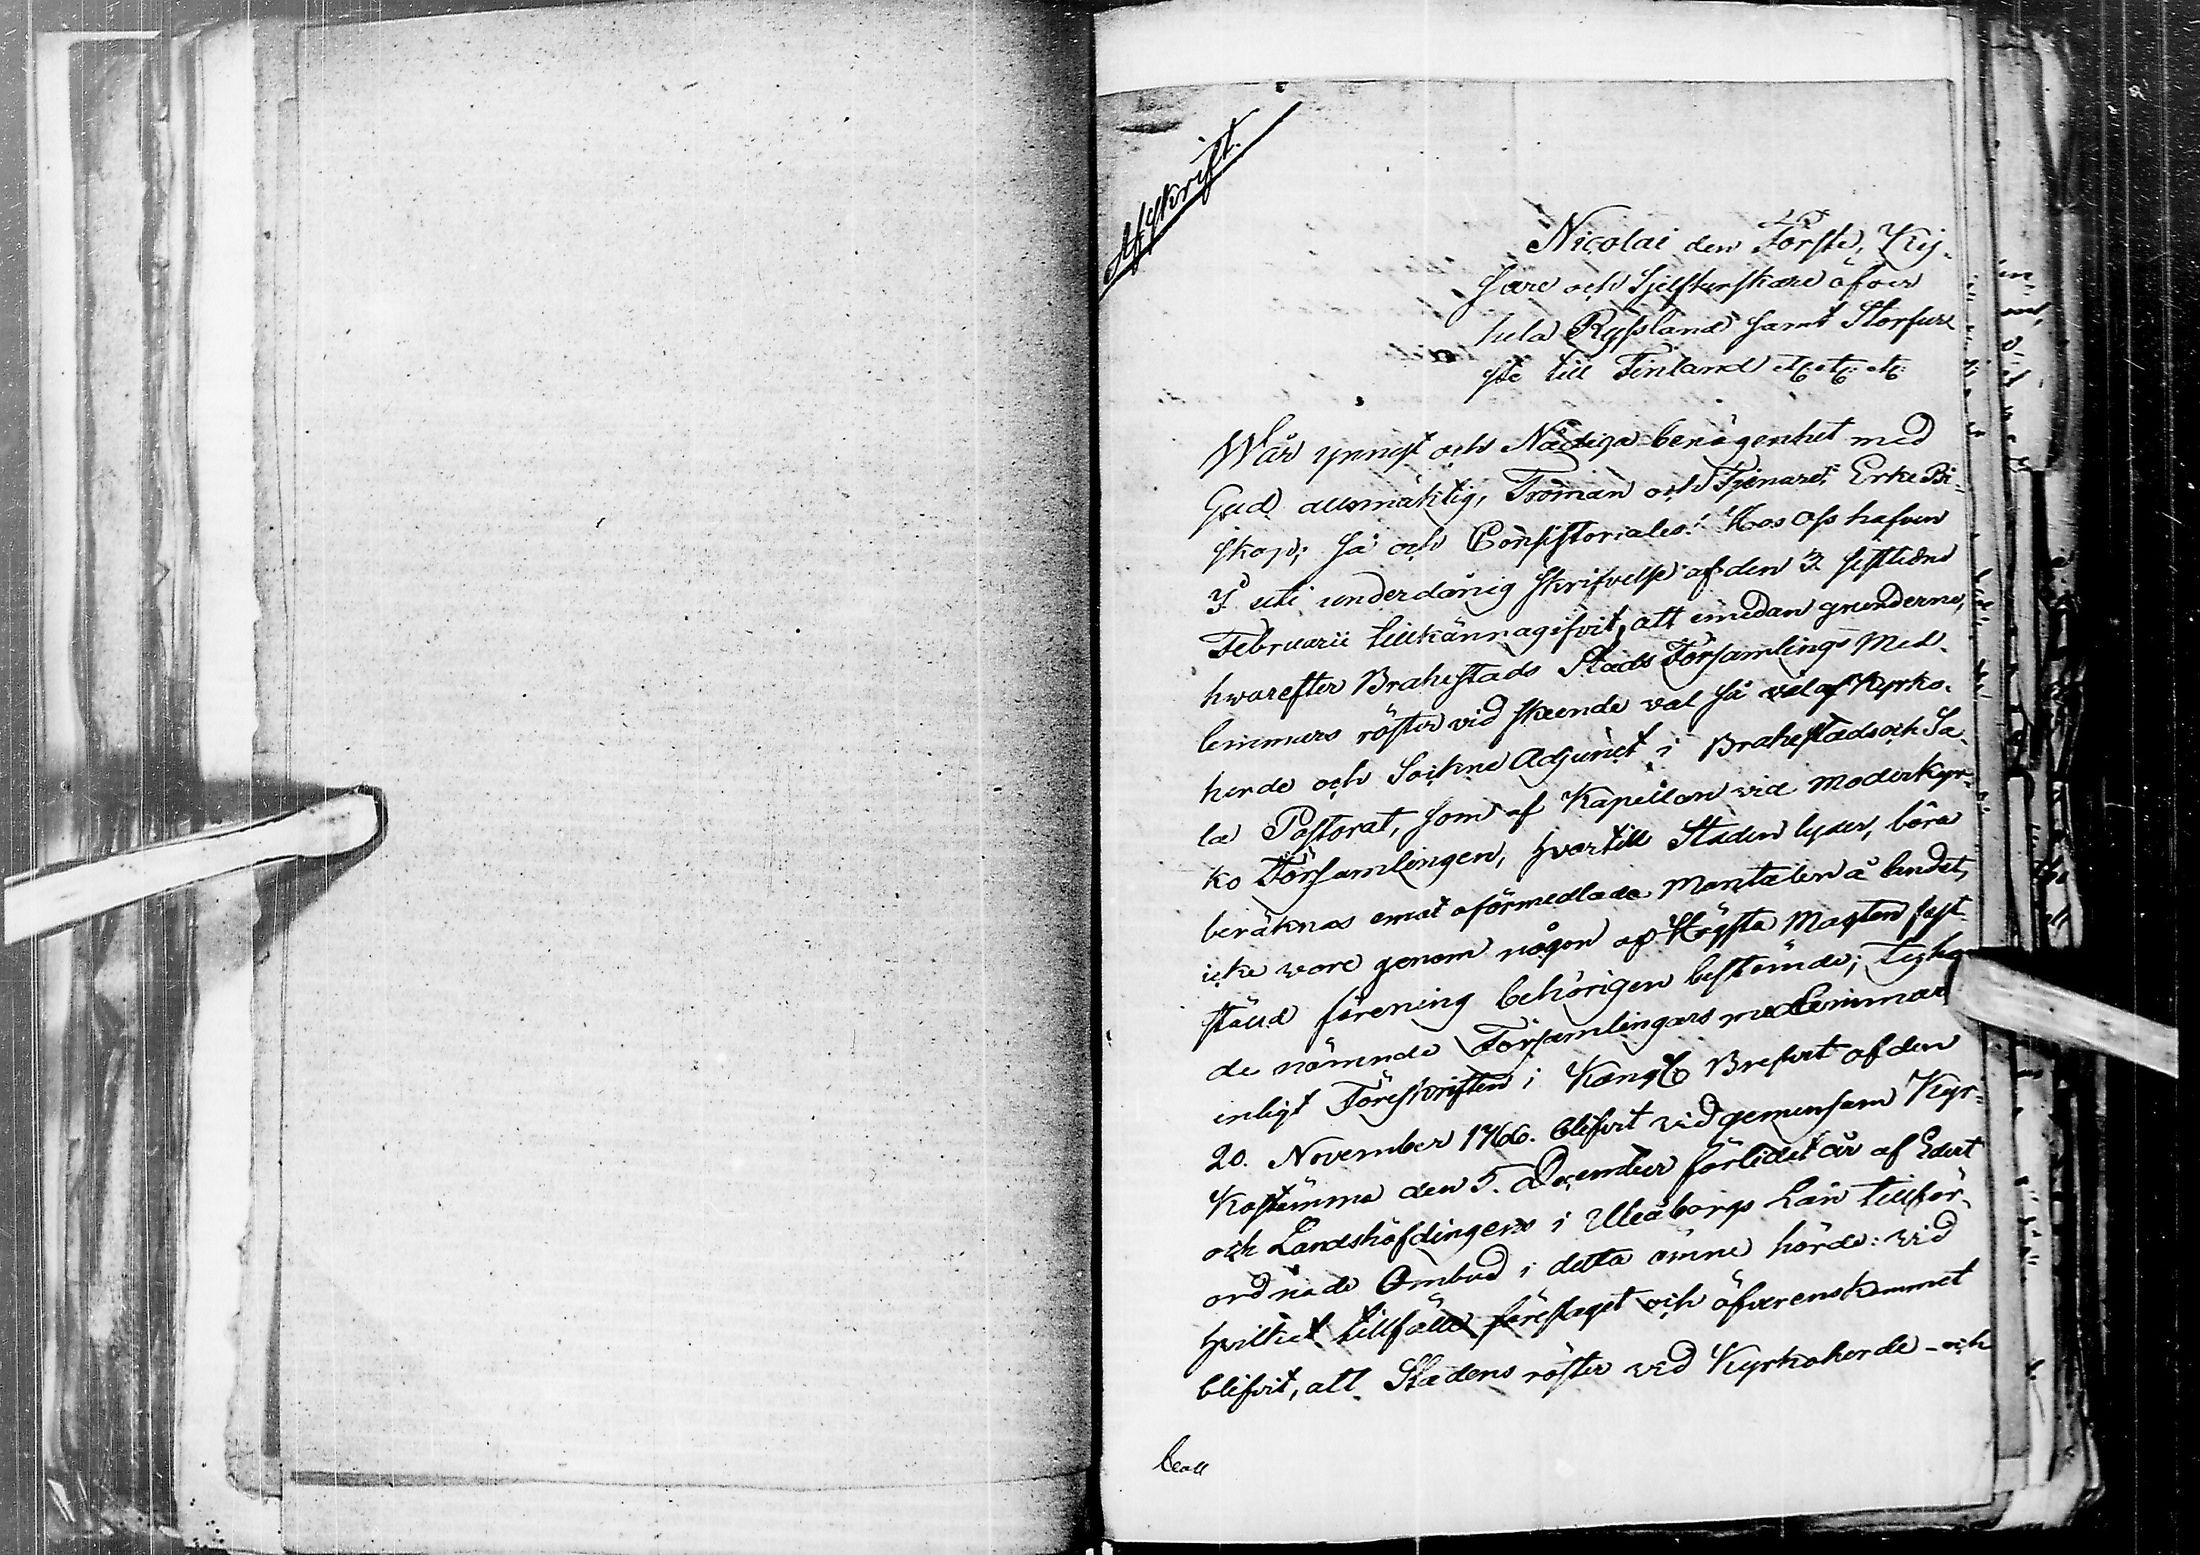 Afskrift.
Nicolai den Förste, Kej-
sare och Sjelfherskare öfver
hela Ryssland samt Storfur
ste till Finland etc. etc. etc.
Wår ynnest och Nådiga benägenhet med
Gud allsmäktig, Troman och Tjenare, Erke Bi-
skop; så och Consistoriales! Hos Oss hafven
I uti underdånig skrifvelse af den 3 sistledne
Februarii tillkännagifvit, att emedan grunderne,
hwarefter Brahestads Stads Församlings Med-
lemmars röster vid skeende val så väl af Kyrko-
herde och Sockne Adjunct i Brahestads och Sa-
la Pastorat, som af Kapellan vid moderkyr-
ko Församlingen, hvartill Staden lyder, böra
beräknas emot oförmedlade Mantalen å landet,
icke vore genom någon af Högsta Magten fast-
ställd förening behörigen bestämde; ty ha
de nämnde Församlingars medlemmar
enligt Föreskriften i Kongl. Brefvet af den
20. November 1766. blifvit vid gemensam Kyr-
kostämma den 5. December förlidet år af Edert
och Landshöfdingens i Uleåborgs Län tillför-
ordnade Ombud i detta ämne hörde: vid
hvilket tillfälle föreslaget och öfverenskommet
blifvit, att Stadens röster vid Kyrkoherde- och